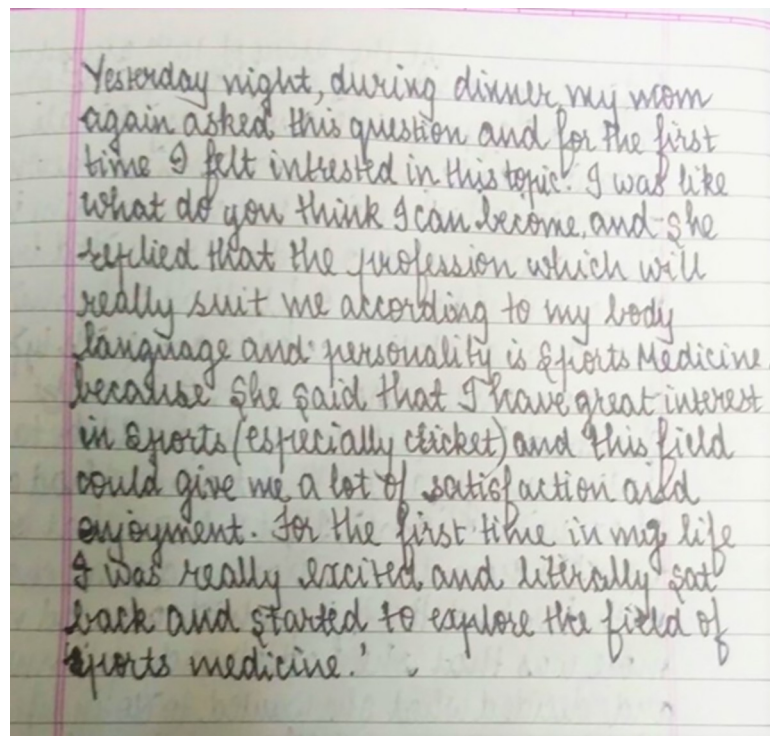 Yesterday night, during dinner, my mom
again asked this question and for the first
time I felt intrested in this topic. I was like
what do you think I can become, and she
replied that the profession which will
really suit me according to my body
language and personality is Sports Medicine
because she said that I have great interest
in sports (especially cricket) and this field
could give me a lot of satisfaction and
enjoyment. For the first time in my life
I was really excited and literally sat
back and started to explore the field of
sports medicine.'